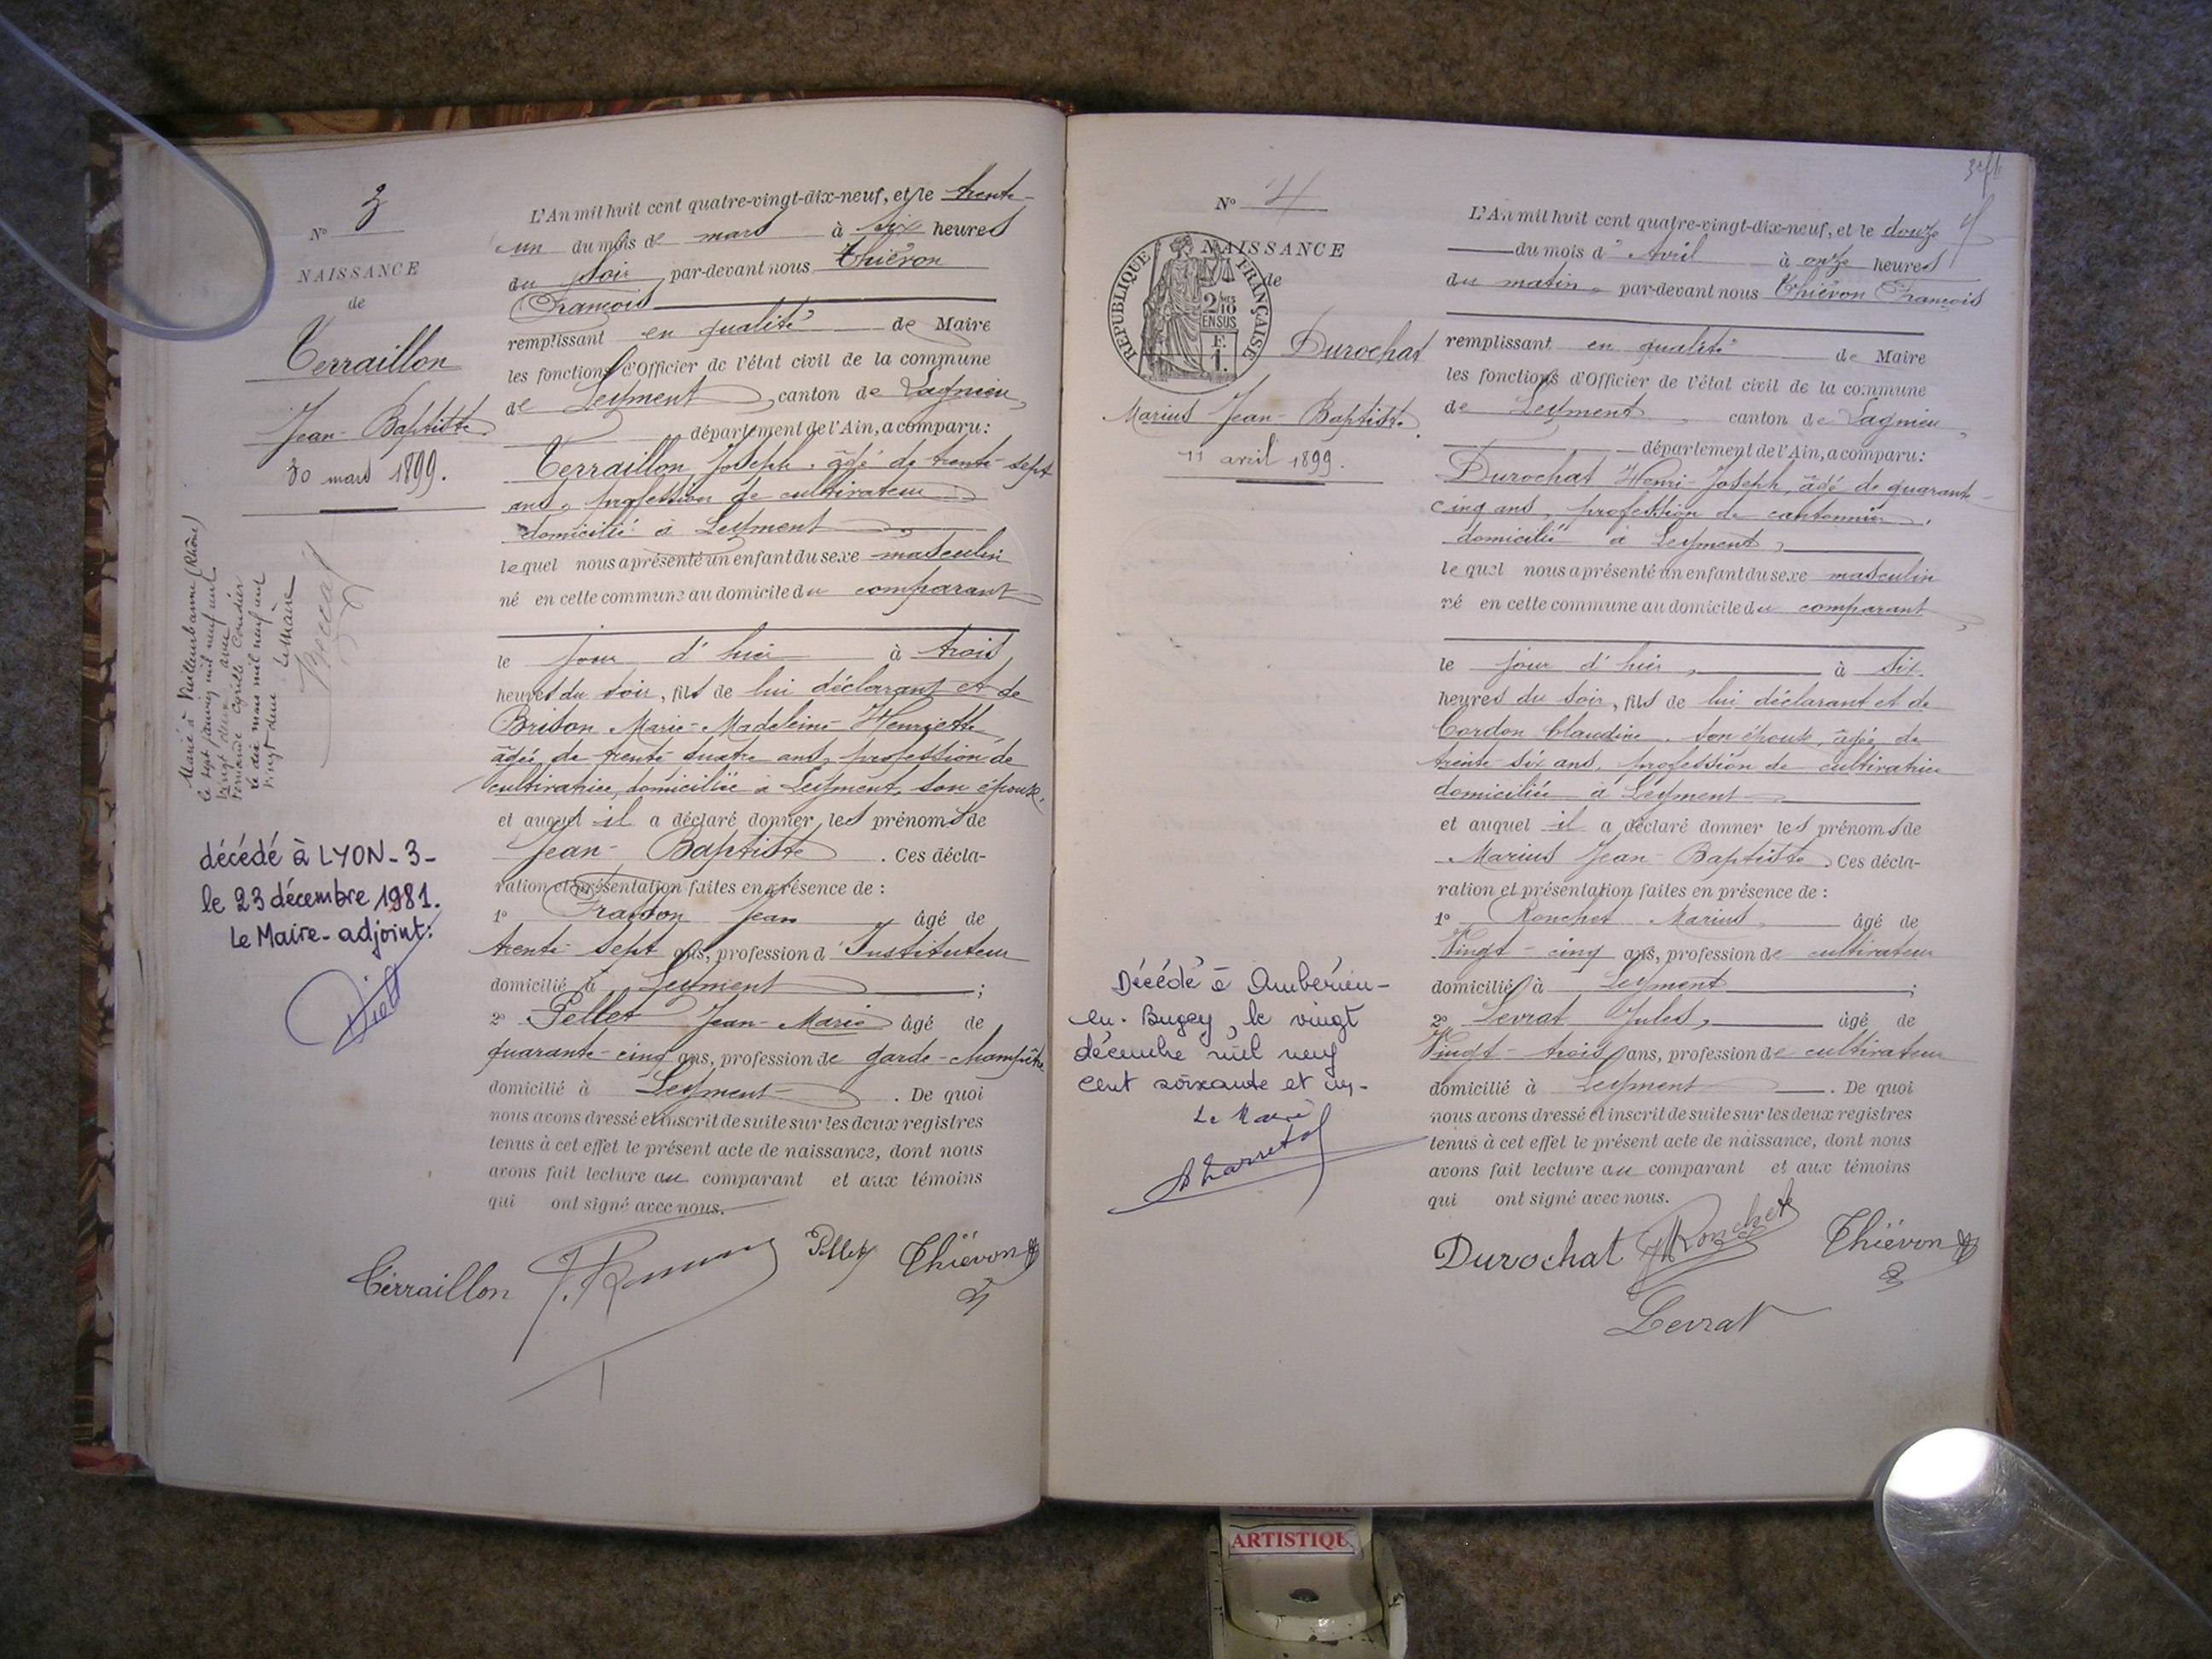 N° 3
NAISSANCE
de
Terraillon
Jean-Baptiste
30 mars 1899.
Marié à Villeurbanne (Rhône)
le sept janvier mil neuf cent
vingt deux avec
Fernande Cyrille
le dix mars mil neuf cent
vingt deux Le Maire
décédé à LYON-3-
le 23 décembre 1981.
Le Maire-adjoint:
L'An mil huit cent quatre-vingt-dix-neuf, et le trente-
un du mois de mars à six heures
du soir par-devant nous Thiévon
François
remplissant en qualité de Maire
les fonctions d'Officier de l'état civil de la commune
de Leyment, canton de Lagnieu,
département de l'Ain, a comparu:
Terraillon Joseph, âgé de trente-sept
ans, profession de cultivateur
domicilié à Leyment
lequel nous a présenté un enfant du sexe masculin
né en cette commune au domicile du comparant
le jour d'hier à trois
heures du soir, fils de lui déclarant et de
Brison Marie-Madeleine-Henriette,
âgée de trente-quatre ans, profession de
cultivatrice, domiciliée à Leyment, son épouse,
et auquel il a déclaré donner les prénoms de
Jean-Baptiste. Ces décla-
ration et présentation faites en présence de :
1° Jean âgé de
trente-sept ans, profession d'Instituteur
domicilié à Leyment ;
2° Pellet Jean-Marie âgé de
quarante-cinq ans, profession de garde-champêtre
domicilié à Leyment. De quoi
nous avons dressé et inscrit de suite sur les deux registres
tenus à cet effet le présent acte de naissance, dont nous
avons fait lecture au comparant et aux témoins
qui ont signé avec nous.
Terraillon Pellet Thiévon
N° 4
NAISSANCE
de
RÉPUBLIQUE FRANÇAISE
2/10
EN SUS
F.
1.
Durochat
Marius Jean-Baptiste.
11 avril 1899.
Décédé à Ambérieu-
en-Bugey, le vingt
décembre mil neuf
cent soixante et un-
Le Maire
4
L'An mil huit cent quatre-vingt-dix-neuf, et le douze
du mois d'Avril à onze heures
du matin, par-devant nous Thiévon François
remplissant en qualité de Maire
les fonctions d'Officier de l'état civil de la commune
de Leyment, canton de Lagnieu,
département de l'Ain, a comparu:
Durochat Henri-Joseph, âgé de quarante-
cinq ans, profession de cantonnier,
domicilié à Leyment,
lequel nous a présenté un enfant du sexe masculin
né en cette commune au domicile du comparant,
le jour d'hier, à six
heures du soir, fils de lui déclarant et de
Cordon Claudine, son épouse, âgée de
trente-six ans, profession de cultivatrice
domiciliée à Leyment
et auquel il a déclaré donner les prénoms de
Marius Jean-Baptiste. Ces décla-
ration et présentation faites en présence de :
1° Ronchet Marius, âgé de
Vingt-cinq ans, profession de cultivateur
domicilié à Leyment ;
2° Levrat Jules, âgé de
Vingt-trois ans, profession de cultivateur
domicilié à Leyment. De quoi
nous avons dressé et inscrit de suite sur les deux registres
tenus à cet effet le présent acte de naissance, dont nous
avons fait lecture au comparant et aux témoins
qui ont signé avec nous.
Durochat Ronchet Thiévon
Levrat
ARTISTIQUE